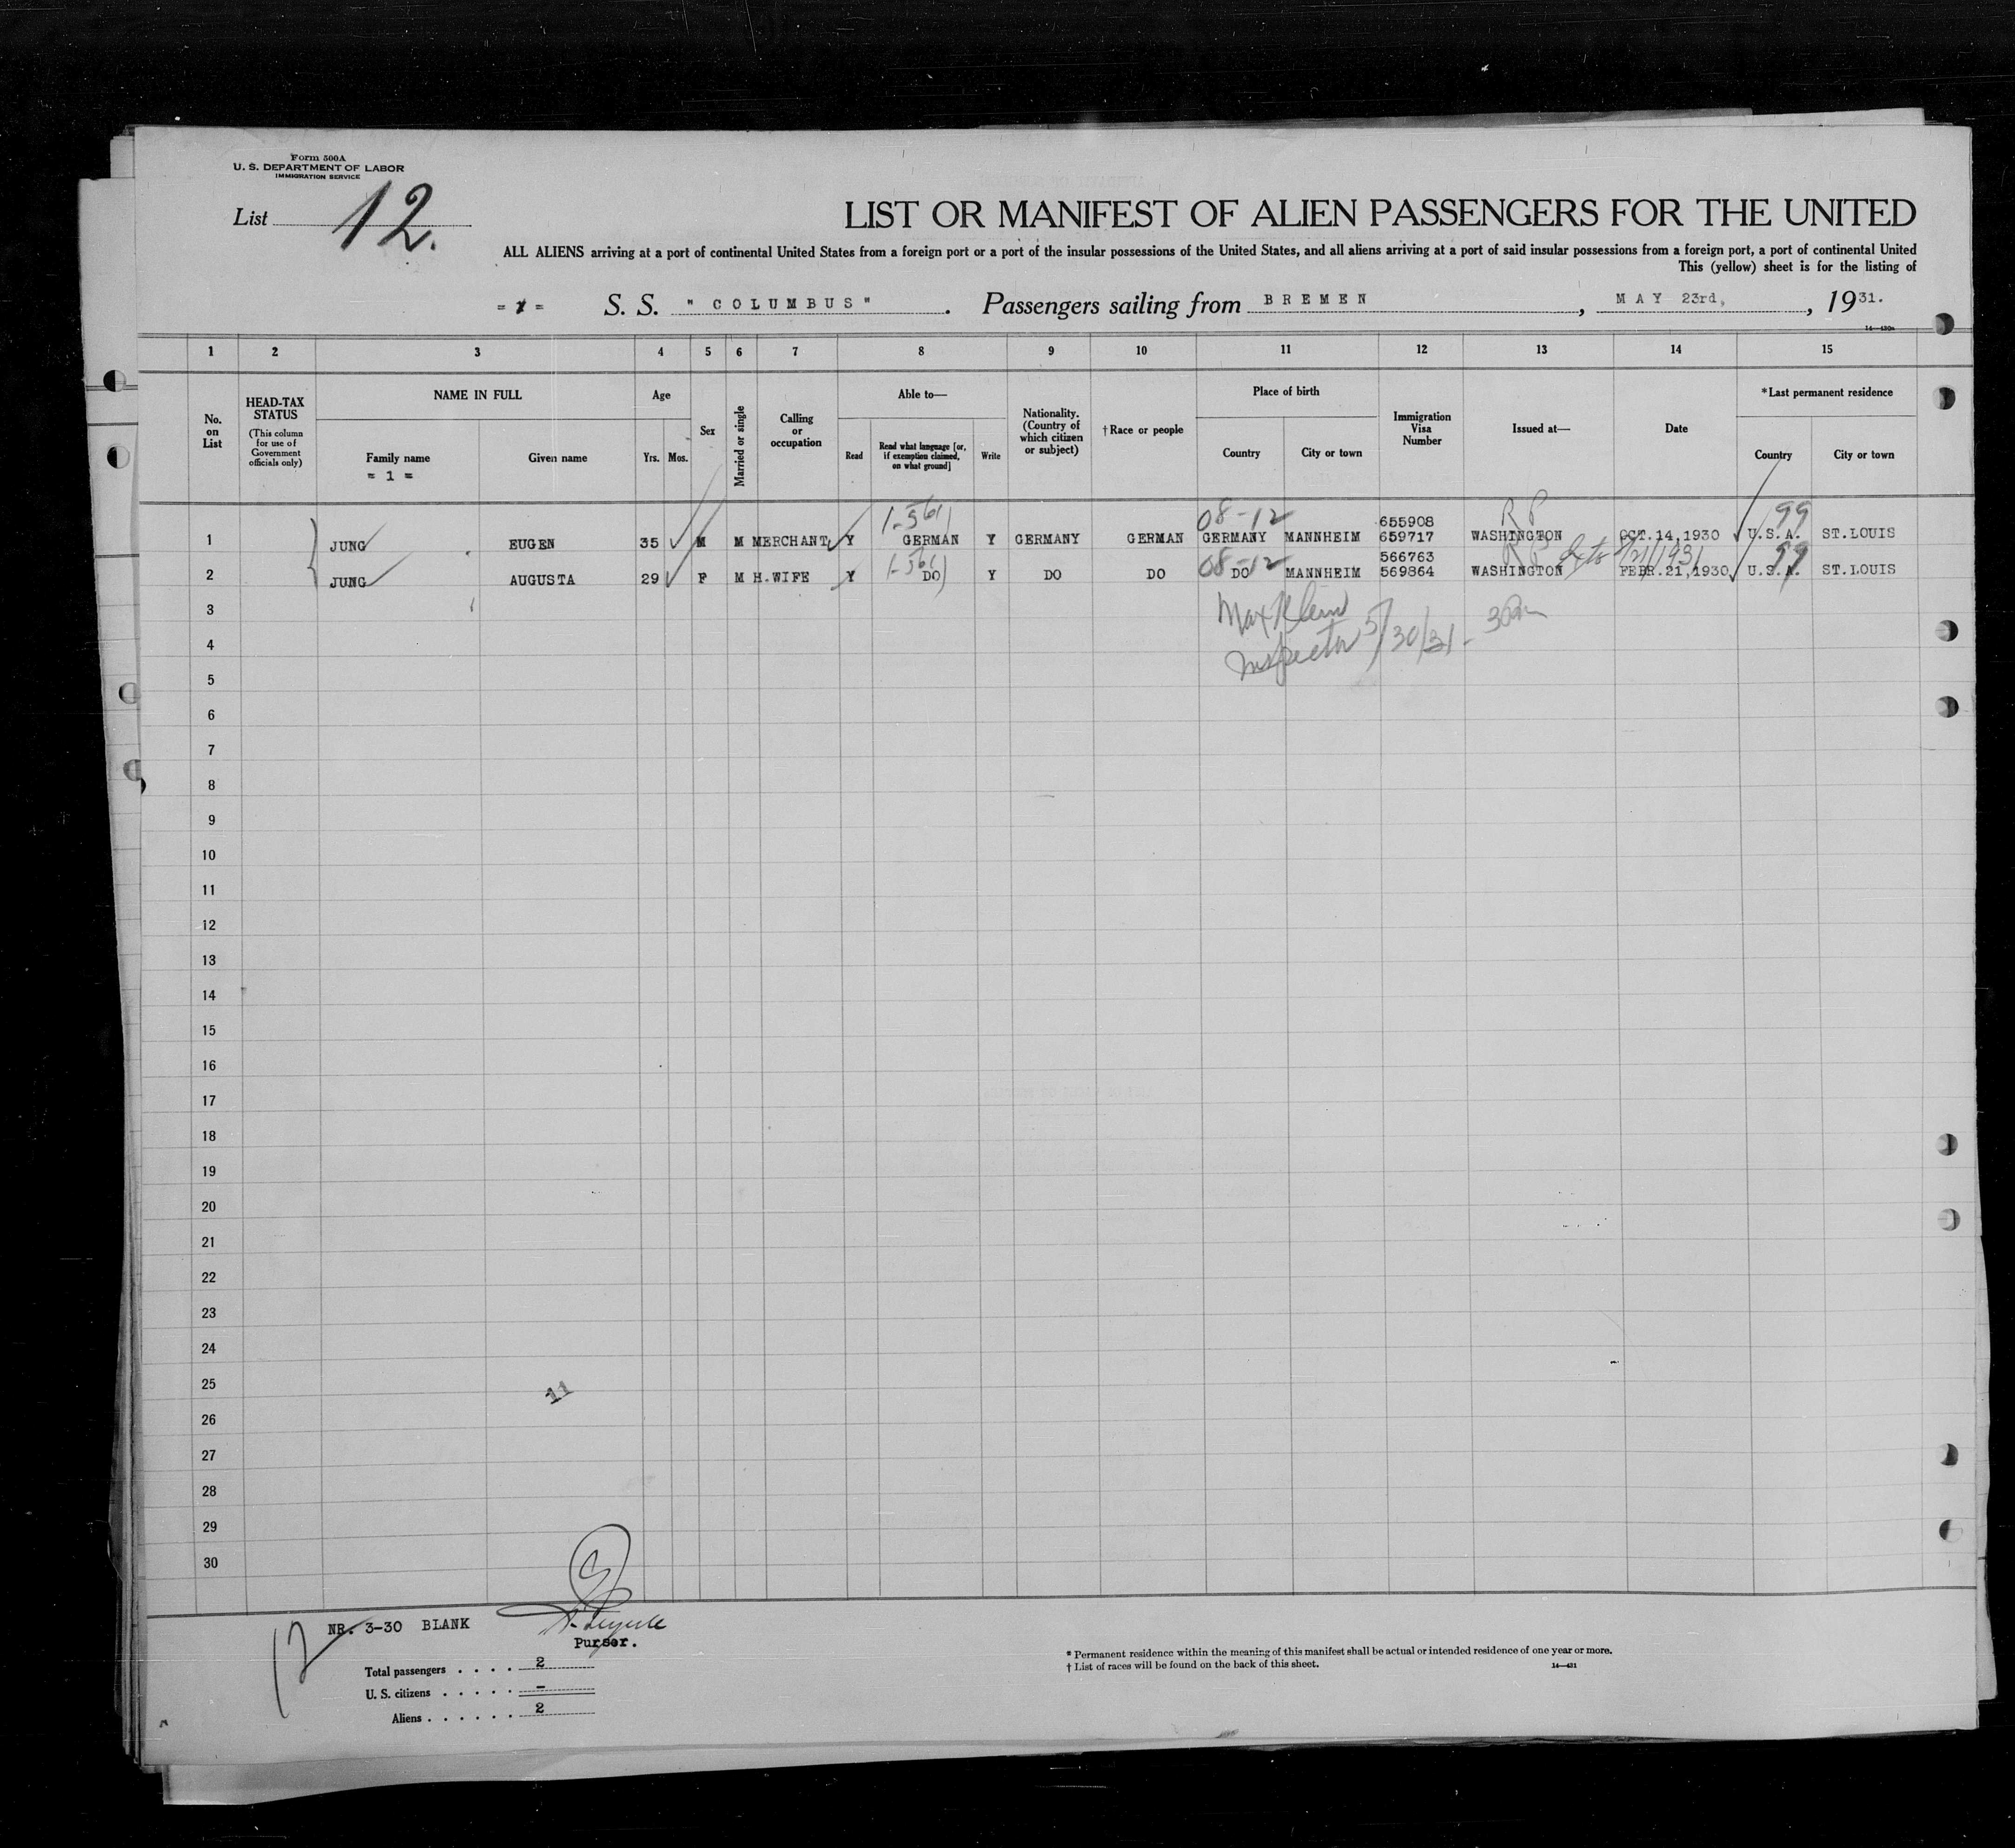 Form 500A
U. S. DEPARTMENT OF LABOR
IMMIGRATION SERVICE
List 12.
LIST OR MANIFEST OF ALIEN PASSENGERS FOR THE UNITED
ALL ALIENS arriving at a port of continental United States from a foreign port or a port of the insular possessions of the United States, and all aliens arriving at a port of said insular possessions from a foreign port, a port of continental United
This (yellow) sheet is for the listing of
S. S. "COLUMBUS". Passengers sailing from BREMEN, MAY 23rd, 1931.
14—430a
1 2 3 4 5 6 7 8 9 10 11 12 13 14 15
No. on List
HEAD-TAX STATUS
(This column for use of Government officials only)
NAME IN FULL
Family name
= 1 =
Given name
Age
Yrs. Mos.
Sex
Married or single
Calling or occupation
Able to—
Read
Read what language [or, if exemption claimed, on what ground]
Write
Nationality. (Country of which citizen or subject)
† Race or people
Place of birth
Country
City or town
Immigration Visa Number
Issued at—
Date
*Last permanent residence
Country
City or town
1-561 08-12 655908 R P 99
1 JUNG EUGEN 35 M M MERCHANT Y GERMAN Y GERMANY GERMAN GERMANY MANNHEIM 659717 WASHINGTON OCT.14,1930 U.S.A. ST.LOUIS
1-561 08-12 566763 R P 2/21/1931 99
2 JUNG AUGUSTA 29 F M H.WIFE Y DO Y DO DO DO MANNHEIM 569864 WASHINGTON FEBR.21,1930 U.S.A. ST.LOUIS
3
Max Klein
4
Inspector 5/30/31 -
5
6
7
8
9
10
11
12
13
14
15
16
17
18
19
20
21
22
23
24
25
11
26
27
28
29
30
12
NR. 3-30 BLANK
Purser.
Total passengers . . . . 2
U. S. citizens . . . . . –
Aliens . . . . . . 2
* Permanent residence within the meaning of this manifest shall be actual or intended residence of one year or more.
† List of races will be found on the back of this sheet.
14—431